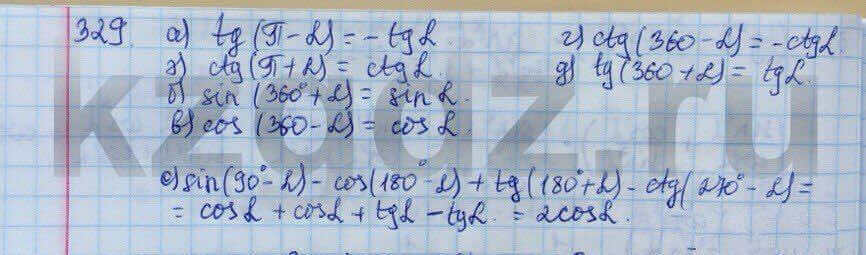 329. а) tg(π-α) = -tgα.
г) ctg(360-α) = -ctgα.
з) ctg(π+α) = ctgα.
д) tg(360+α) = tgα.
б) sin(360°+α) = sinα.
в) cos(360-α) = cosα.
е) sin(90°-α) - cos(180°-α) + tg(180°+α) - ctg(270°-α) =
= cosα + cosα + tgα - tgα. = 2cosα.
kzgdz.ru